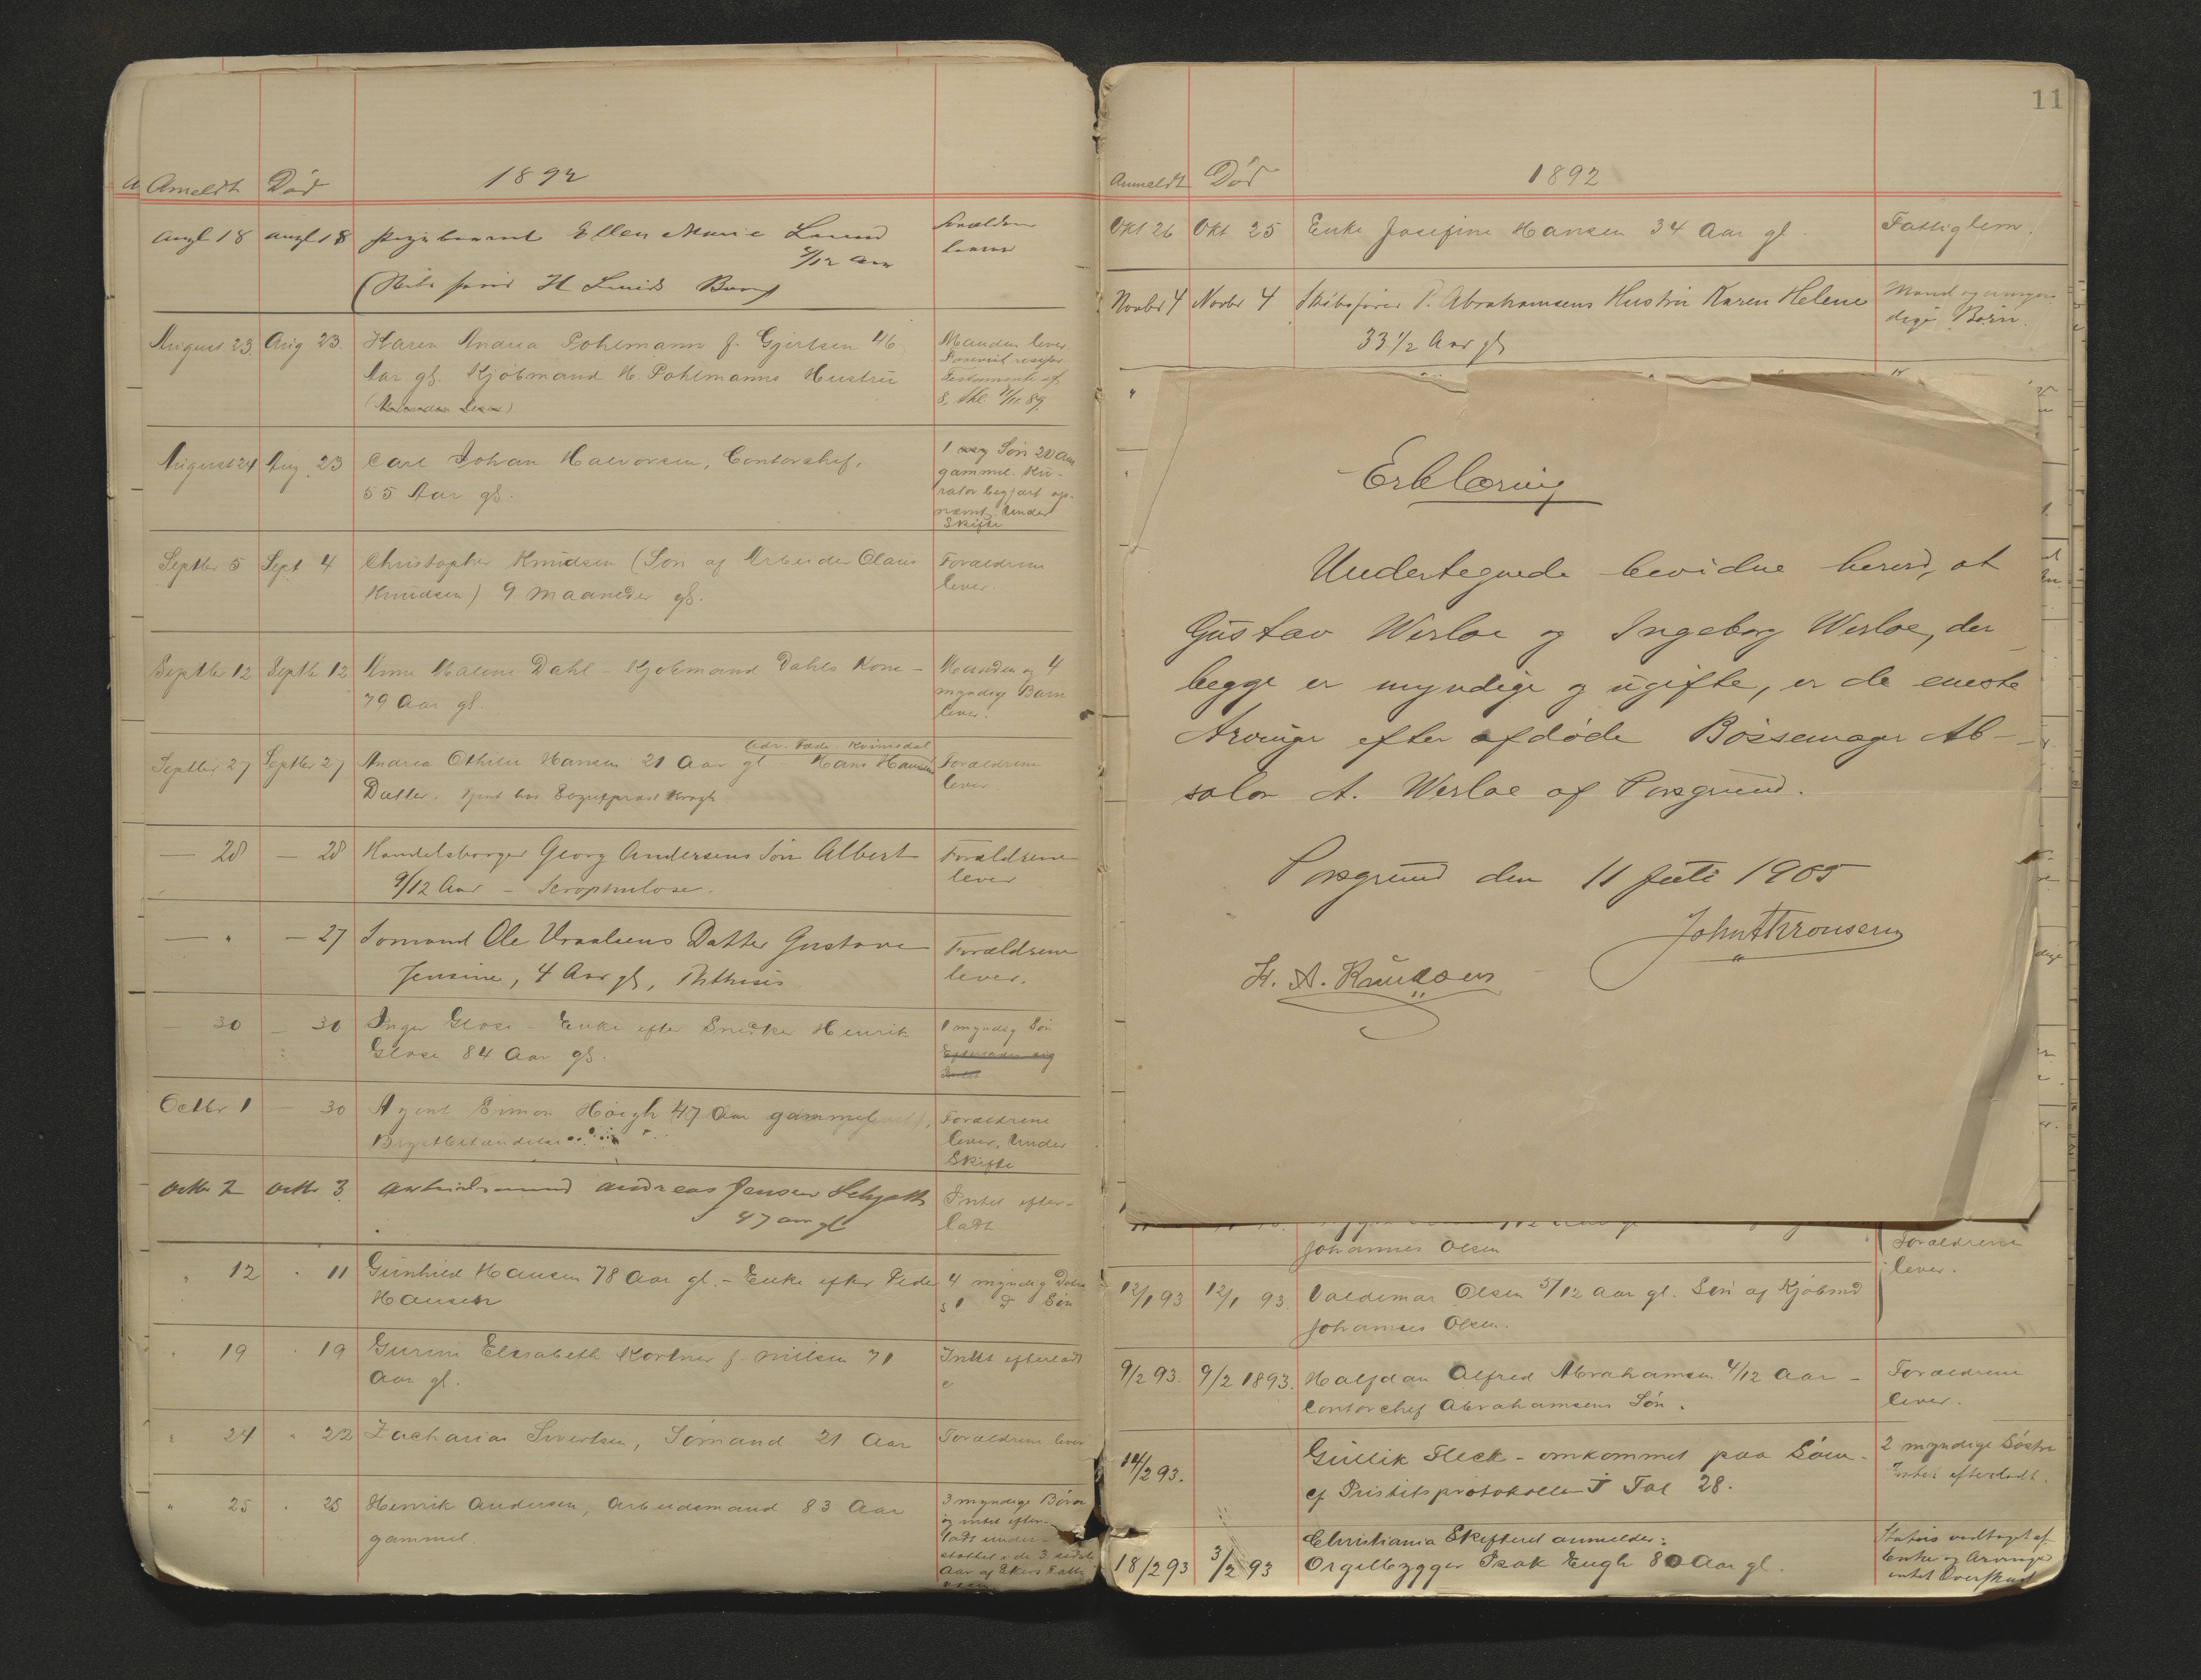 Anmeldt Död 1892
Augt 18 augt 18 pigebarnet Ellen Marie Lund Forældrene
/12 aar lever
H Lunds Barn
August 23. Aug 23. Karen Andrea Pohlmann f. Gjertsen 46 Manden lever
Aar gl. Kjöbmand H. Pohlmanns Hustru Testamente af
8. Jkl. 11/11. 89.
August 24 Aug. 23 Carl Johan Halvorsen, Contorchef, 1 Sön 20 Aar
55 Aar gl. gammel. Ku-
rator begjært op-
nævnt. Under
Skifte
Septbr 5 Sept 4 Christopher Knudsen (Sön af Arbeider Olaus Forældrene
Knudsen) 9 Maaneder gl. lever.
Septbr 12 Septb 12 Anne Malene Dahl - Kjöbmand Dahls Kone - Manden og 4
79 Aar gl. myndige Barn
lever.
Adr. Fads. Kvinnsdal
Septbr 27 Septbr 27 Andrea Othilie Hansen 21 Aar gl - Hans Hansens Forældrene
Datter. tjent hos Sogneprest Krogh lever
— 28 — 28 Handelsborger Georg Andersens Sön Albert Forældrene
9/12 Aar - Scrophulose. lever
— " — 27 Sömand Ole Uraalsens Datter Gustava Forældrene
Jensine, 4 Aar gl, Phthisis lever.
— 30 — 30 Inger Glose - Enke efter Snedker Henrik 1 myndig Sön
Glose 84 Aar gl. Efterlader sig
Octbr 1 — 30 Agent Simon Höegh 47 Aar gammel Forældrene
Brystbetændelse lever. Under
Skifte
Octbr 2 octbr 3. arbeidsmand Andreas Jensen Schjøtt Intet efter-
47 aar gl ladt.
" 12 " 11 Gunhild Hansen 78 Aar gl. - Enke efter Peder 4 myndig Döttre
Hansen 1 D Sön
" 19 " 19 Gurine Elisabeth Kortner f. Nilsen 71 Intet efterladt
Aar gl.
" 24 " 22 Zacharias Sivertsen, Sömand 21 Aar Forældrene lever
" 25 " 25 Henrik Andersen, Arbeidsmand 83 Aar 3 myndige Börn
gammel. og intet efter-
ladt under-
stöttet i de 3 sidste
Aar af Ekers Fattig
11
Anmeldt Död 1892
Okt 26 Okt 25 Enke Josefine Hansen 34 Aar gl. Fattiglem.
Novbr 4 Novbr 4 Skibsförer P. Abrahamsens Hustru Karen Helene Mand og umyn-
33 1/2 Aar gl dige Börn.
Erklæring
Undertegnede bevidne herved, at
Gustav Werloe og Ingeborg Werloe, der
begge er myndige og ugifte, er de eneste
Arvinger efter afdöde Bössemager Ab-
salon A. Werloe af Porsgrund.
Porsgrund den 11 Juli 1905
John Thronsen
H. A. Knudsen
Johannes Olsen Forældrene
lever.
12/1 93 12/1 93. Valdemar Olsen 5/12 Aar gl. Sön af Kjöbmd
Johannes Olsen.
9/2 93. 9/2 1893. Halfdan Alfred Abrahamsen 4/12 Aar - Forældrene
Contorchef Abrahamsens Sön. lever.
14/2 93. Gullik Fleck - omkommet paa Söen - 2 myndige Söstre
cf Pristitsprotokollen I Fol 28. Intet efterladt.
Christiania Skifteret anmelder: Status vedtaget af
18/2 93 3/2 93 Orgelbygger Isak Engh 80 Aar gl. Enke og Arvinger
intet Overskud